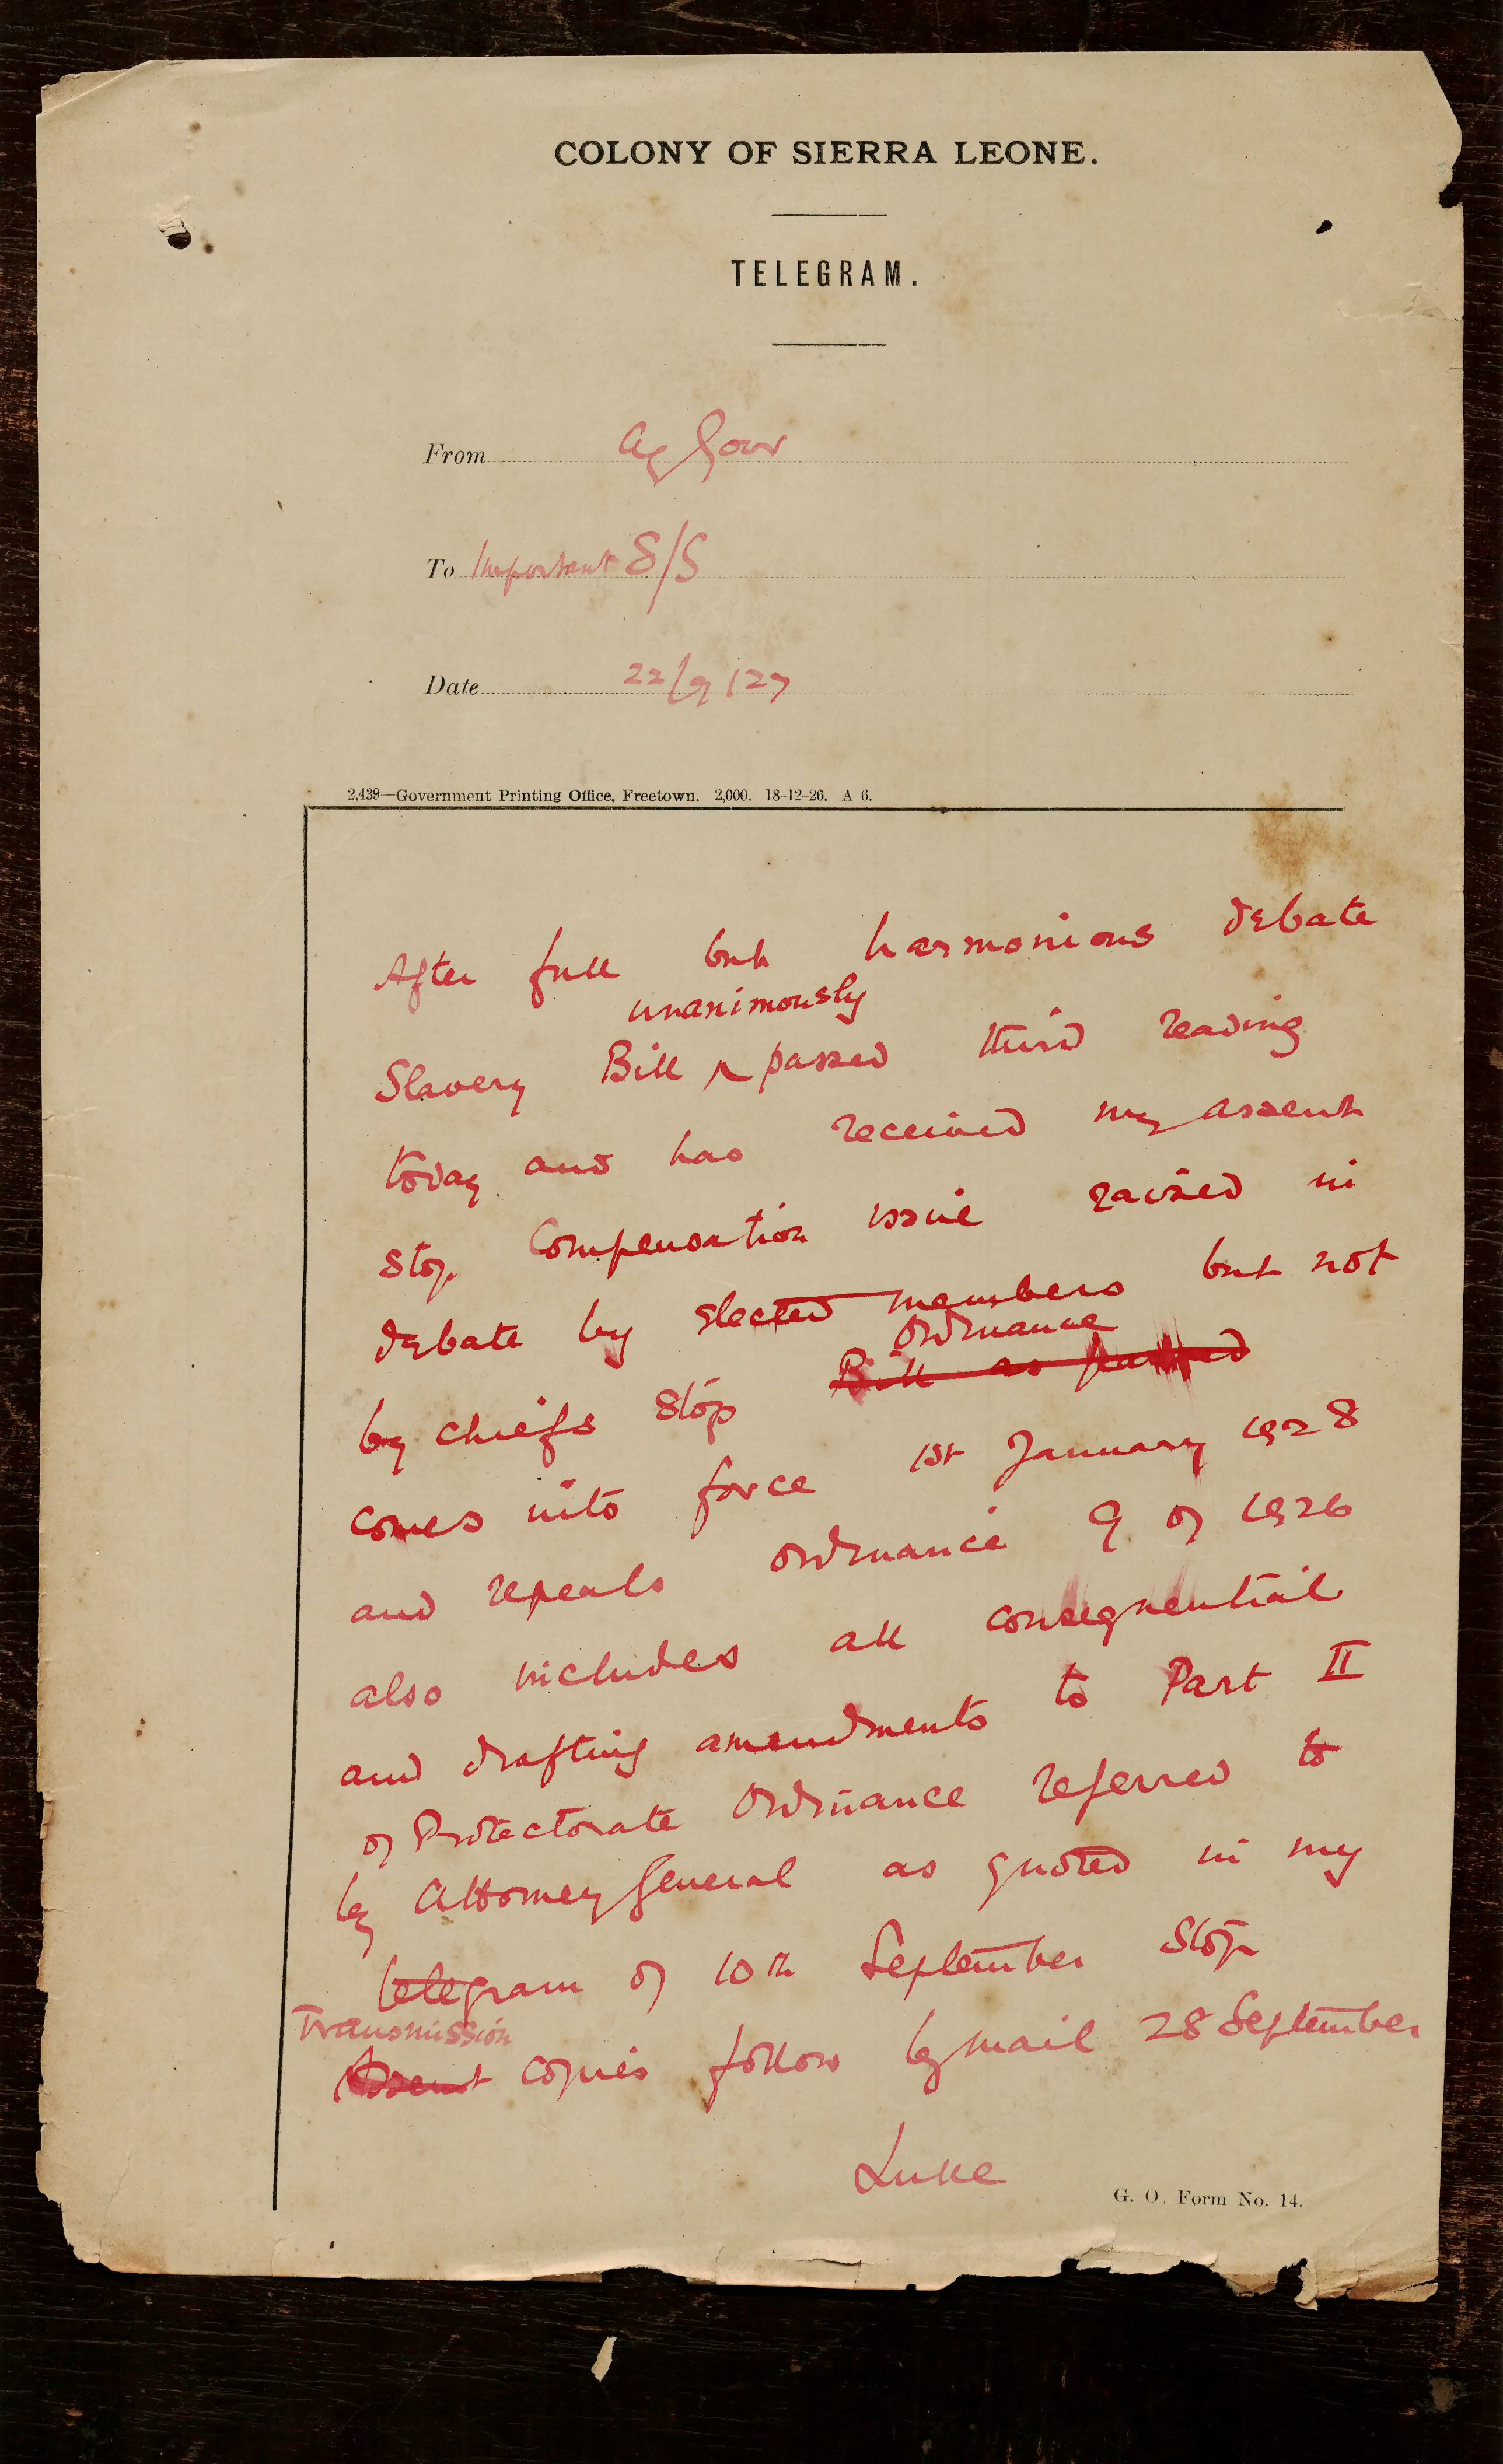 COLONY OF SIERRA LEONE.
TELEGRAM.
From Ag Govr
To Important S/S
Date 22/9/27
2,439—Government Printing Office, Freetown. 2,000. 18-12-26. A 6.
After full but harmonious debate
unanimously
Slavery Bill ^ passed third reading
today and has received my assent
stop Compensation issue raised in
debate by elected members but not
Ordinance
by chiefs stop Bill as passed
comes into force 1st January 1928
and repeals Ordinance 9 of 1926
also includes all consequential
and drafting amendments to Part II
of Protectorate Ordinance referred to
by Attorney General as quoted in my
telegram of 10th September Stop
Transmission
Assent copies follow by mail 28 September
Luke
G. O. Form No. 14.